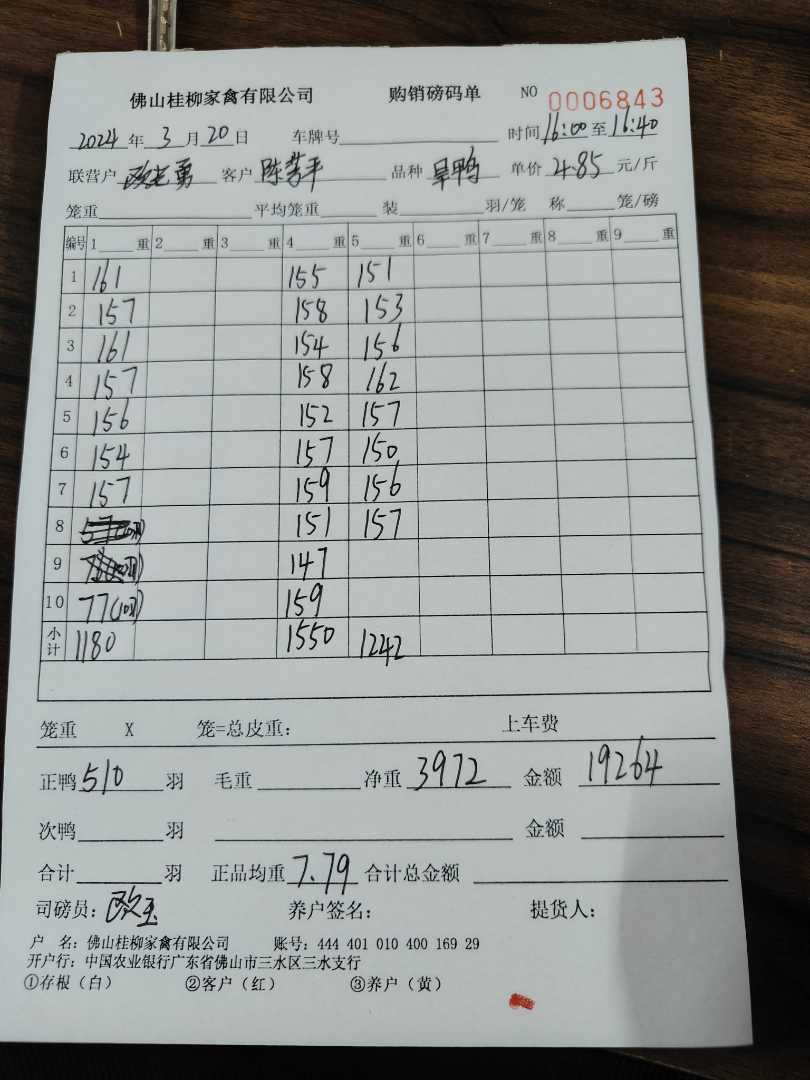 佛山桂柳家禽有限公司 购销磅码单 NO 0006843
2024年3月20日 车牌号 时间16:00至16:40
联营户 欧志勇 客户 陈 平 品种 旱鸭 单价 4.85 元/斤
笼重 平均笼重 装 羽/笼 称 笼/磅
编号 1 重 2 重 3 重 4 重 5 重 6 重 7 重 8 重 9 重
1 161 155 151
2 157 158 153
3 161 154 156
4 157 158 162
5 156 152 157
6 154 157 150
7 157 159 156
8 151 157
9 147
10 77(10羽) 159
小计 1180 1550 1242
笼重 X 笼=总皮重: 上车费
正鸭 510 羽 毛重 净重 3972 金额 19264
次鸭 羽 金额
合计 羽 正品均重 7.79 合计总金额
司磅员: 欧玉 养户签名: 提货人:
户 名: 佛山桂柳家禽有限公司 账号: 444 401 010 400 169 29
开户行: 中国农业银行广东省佛山市三水区三水支行
①存根(白) ②客户(红) ③养户(黄)